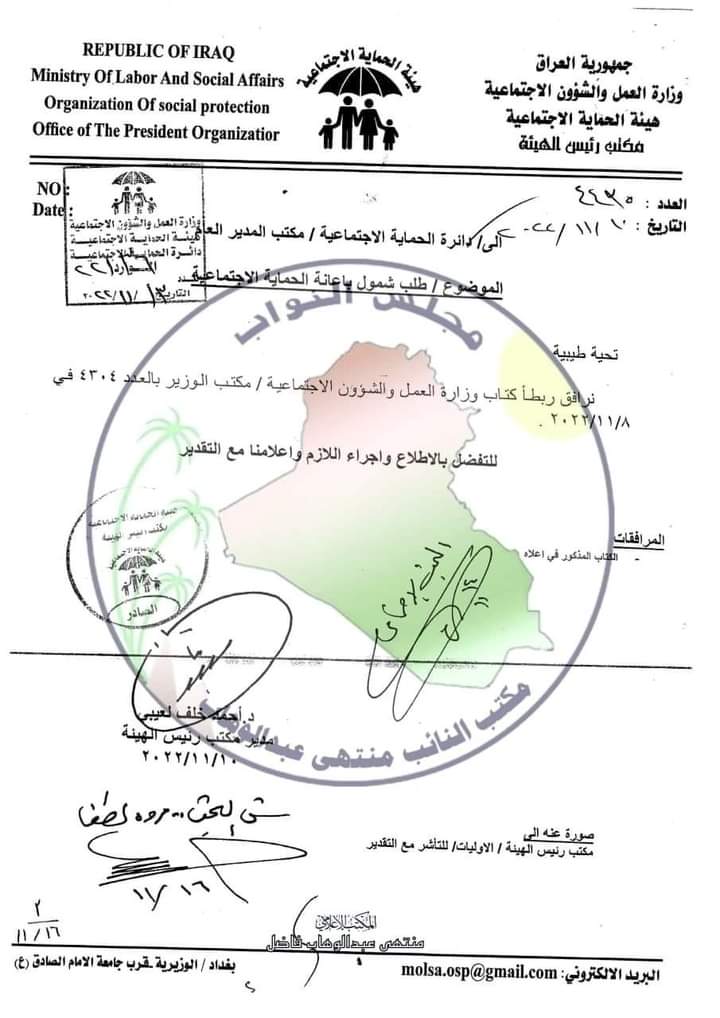 REPUBLIC OF IRAQ
Ministry Of Labor And Social Affairs
Organization Of social protection
Office of The President Organizatior
هيئة الحماية الاجتماعية
جمهورية العراق
وزارة العمل والشؤون الاجتماعية
هيئة الحماية الاجتماعية
مكتب رئيس الهيئة
NO:
Date:
وزارة العمل والشؤون الاجتماعية
هيئة الحماية الاجتماعية
دائرة الحماية الاجتماعية
التاريخ ٢٠٢٢/١١/١٣
العدد : ٤٤٣٥
التاريخ : ٢٠٢٢/١١/١٠
الى/ دائرة الحماية الاجتماعية / مكتب المدير العام
الموضوع / طلب شمول باعانة الحماية الاجتماعية
مجلس النواب
تحية طيبية
نرافق ربطاً كتاب وزارة العمل والشؤون الاجتماعية / مكتب الوزير بالعدد ٤٣٠٤ في
٢٠٢٢/١١/٨ .
للتفضل بالاطلاع واجراء اللازم واعلامنا مع التقدير
المرافقات
- الكتاب المذكور في اعلاه
هيئة الحماية الاجتماعية
مكتب رئيس الهيئة
الصادر
مكتب النائب منتهى عبدالوهاب
د.أحمد خلف لعيبي
مدير مكتب رئيس الهيئة
٢٠٢٢/١١/١٠
١١/١٦
صورة عنه الى
مكتب رئيس الهيئة / الاوليات/ للتأشر مع التقدير
٢
١١/١٦
المكتب الاعلامي
منتهى عبدالوهاب فاضل
بغداد / الوزيرية ـ قرب جامعة الامام الصادق (ع)
البريد الالكتروني: molsa.osp@gmail.com